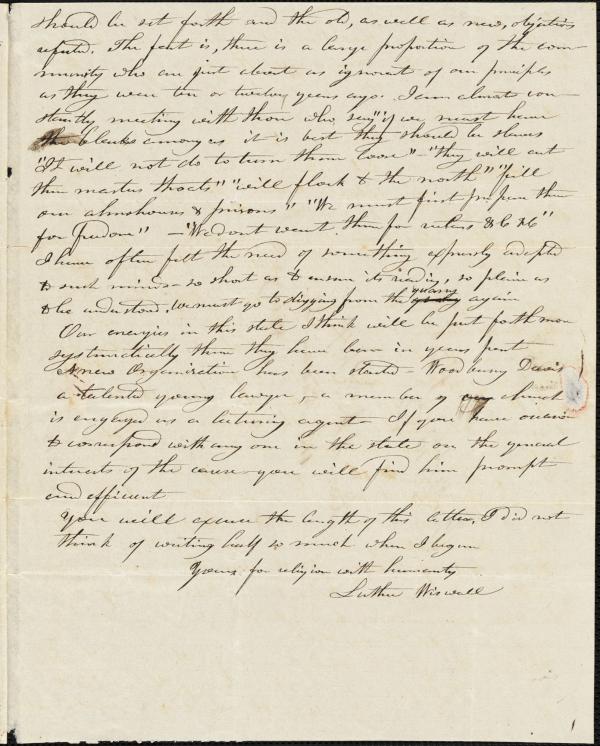 should be set forth and the old, as well as new, objections
refuted. The fact is, there is a large proportion of the com-
munity who are just about as ignorant of our principles
as they were ten or twelve years ago. I am almost con-
stantly meeting with those who say "if we must have
the blacks among us it is best they should be slaves
"It will not do to turn them loose" - "they will cut
their masters throats" "will flock to the north" "fill
our almshouses & prisons" "We must first prepare them
for freedom" - "We dont want them for rulers &c &c"
I have often felt the need of something expressly adapted
to such minds - so short as to ensure its reading, so plain as
to be understood. We must go to digging from the quarry again
Our energies in this state I think will be put forth more
systematically than they have been in years past
A new Organization has been started - Woodbury Davis
a talented young lawyer, - a member of our church
is engaged as a lecturing agent - If you have occasion
to correspond with any one in the state on the general
interests of the cause - you will find him prompt
and efficient
You will excuse the length of this letter, I did not
think of writing half so much when I began
Yours for religion with humanity
Luther Wiswall